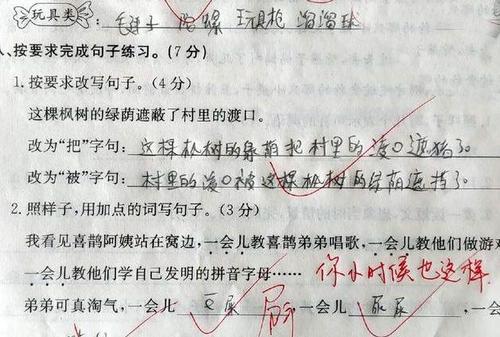 玩具类：毽子 陀螺 玩具枪 溜溜球
、按要求完成句子练习。(7分)
1. 按要求改写句子。(4分)
这棵枫树的绿荫遮蔽了村里的渡口。
改为“把”字句：这棵枞树的绿荫把村里的渡口遮挡了。
改为“被”字句：村里的渡口被这棵枞树的绿荫遮挡了。
2. 照样子,用加点的词写句子。(3分)
我看见喜鹊阿姨站在窝边,一会儿教喜鹊弟弟唱歌,一会儿教他们做游
一会儿教他们学自己发明的拼音字母…… 你小时候也这样
弟弟可真淘气,一会儿 尿尿 ,一会